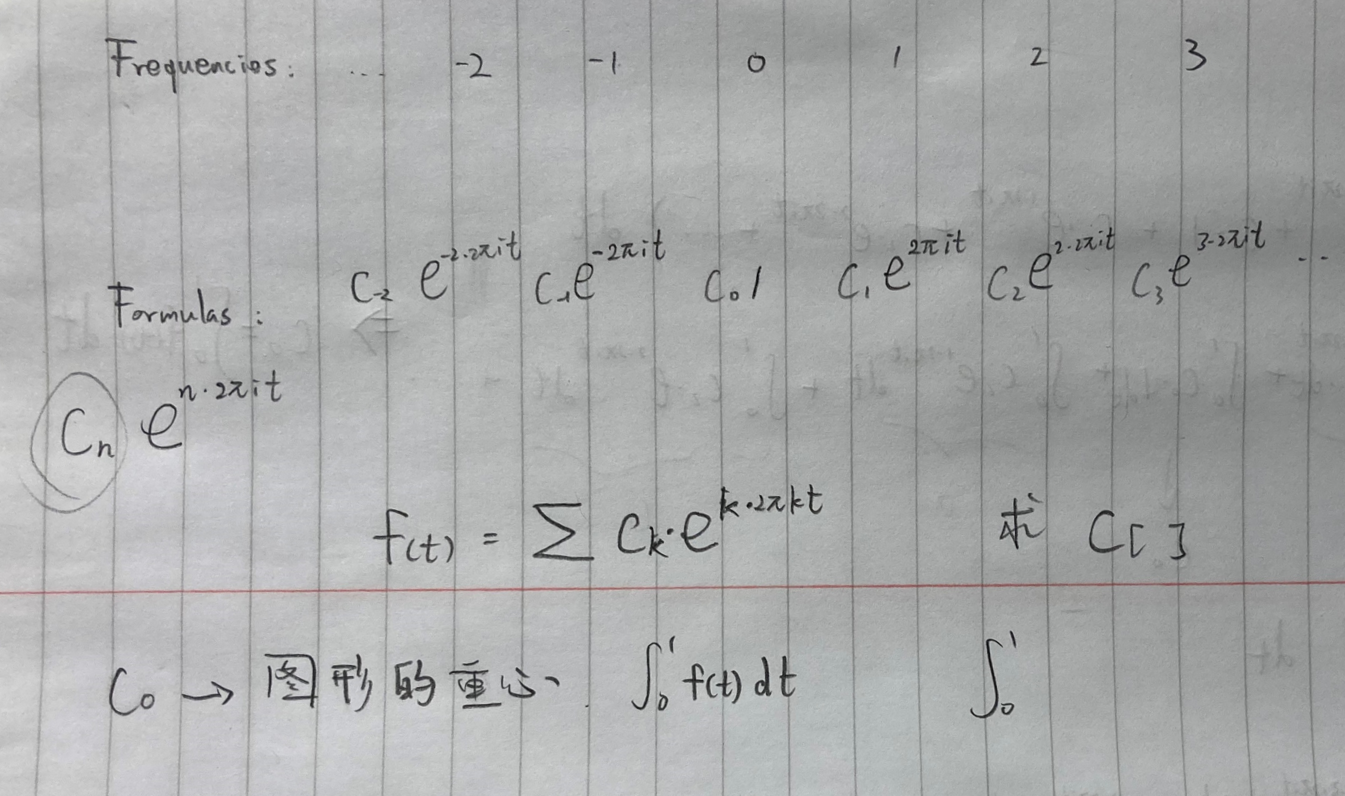 Frequencies: ... -2 -1 0 1 2 3
Formulas: C₋₂ e^{-2·2πit} C₋₁e^{-2πit} C₀1 C₁e^{2πit} C₂e^{2·2πit} C₃e^{3·2πit} ..
Cₙ e^{n·2πit}
f(t) = ∑ Cₖ·e^{k·2πkt} 求 C[ ]
C₀ → 图形的重心. ∫₀¹ f(t) dt ∫₀¹